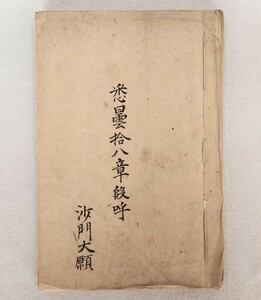 悉曇拾八章段呼
沙門大願